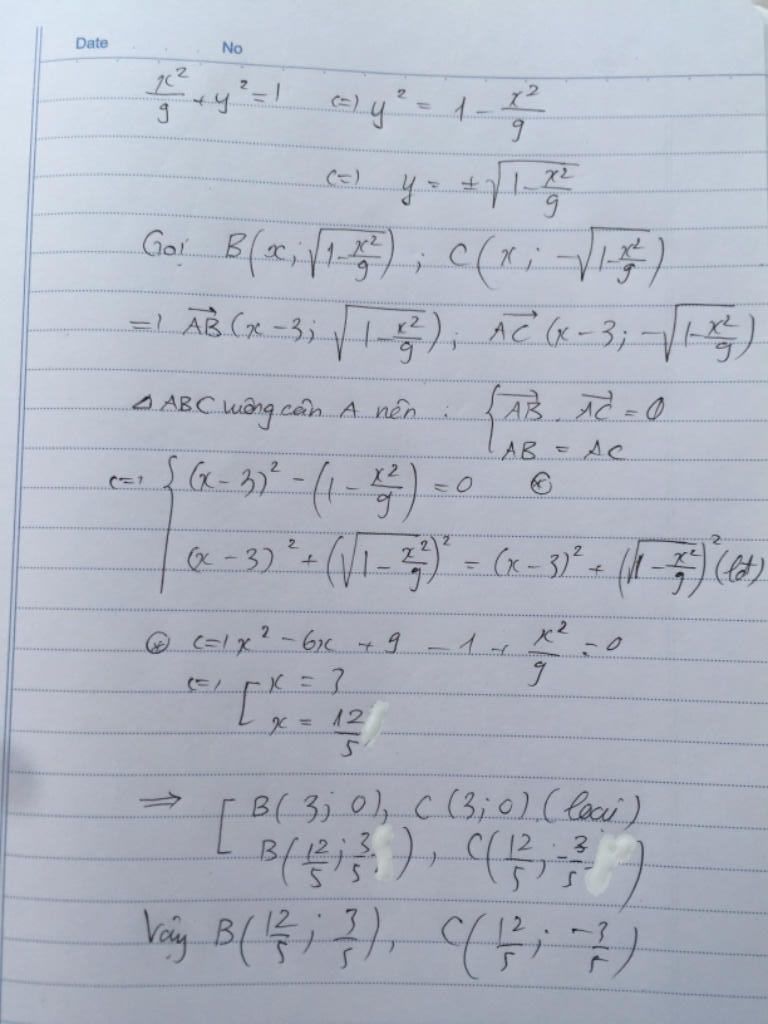 Date No
x²/9 + y² = 1 <=> y² = 1 - x²/9
<=> y = ±√(1 - x²/9)
Gọi B(x; √(1 - x²/9)); C(x; -√(1 - x²/9))
=> AB→(x - 3; √(1 - x²/9)); AC→(x - 3; -√(1 - x²/9))
△ABC vuông cân A nên: { AB→ . AC→ = 0
AB = AC
<=> { (x - 3)² - (1 - x²/9) = 0 (*)
(x - 3)² + (√(1 - x²/9))² = (x - 3)² + (√(1 - x²/9))² (lđ)
(*) <=> x² - 6x + 9 - 1 + x²/9 = 0
<=> [ x = 3
x = 12/5
=> [ B(3; 0), C(3; 0) (loại)
B(12/5; 3/5), C(12/5; -3/5)
Vậy B(12/5; 3/5), C(12/5; -3/5)